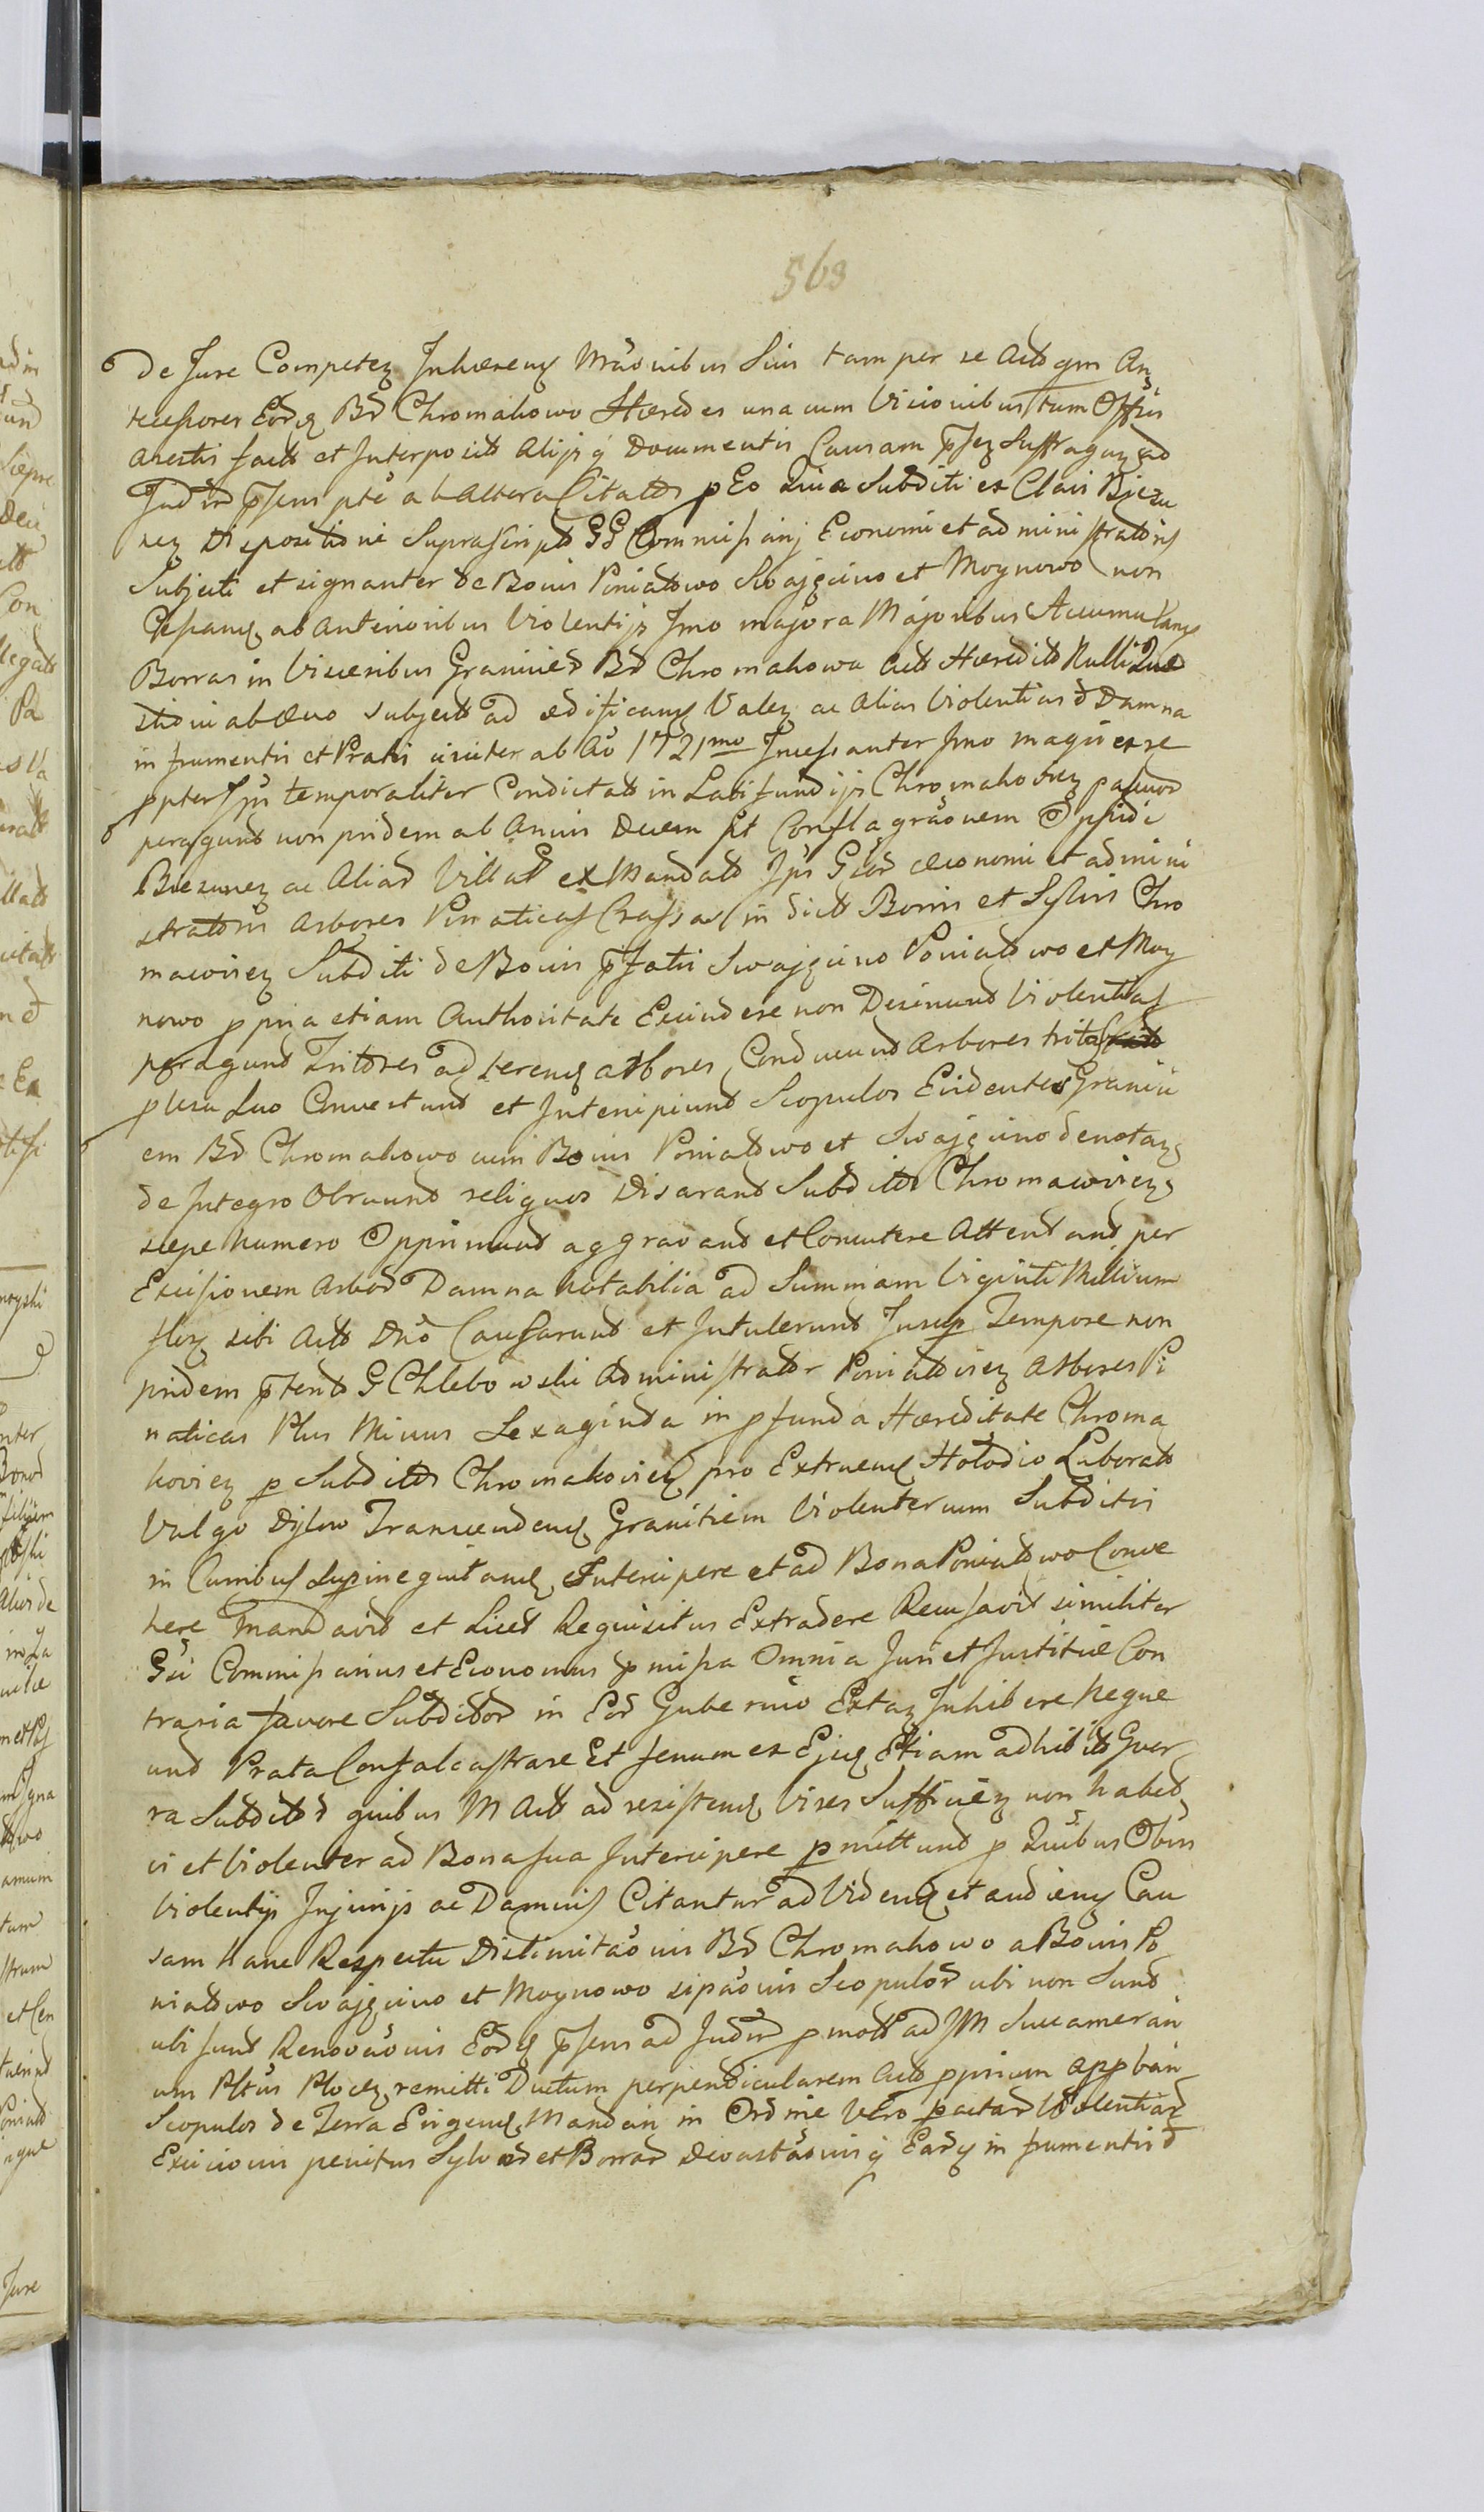 568
de Jure Competez Inhærens Mraõnibus Suis tam per se Acto qm An
tecessores Eordz Bd Chromakowo Hæredes una cum Vicionibus tum Offsis
Arestis facts et Interposits Alijsq̃ Documentis Causam p̃sez Suffragaz ad
Jud̃ir p̃sens pte ab Altera Citatos p Eo Quia Subditi ex Clavi Biezu
nez Dispositioni Suprascript GG Commissarij Economi et administratoris
Subjecti et signanter de Bonis Poniatowo Swajęcino et Moynowo non
Cessans ab Anterioribus Violentijs Imo majora Majoribus Accumulans
Borras in Visceribus Graniciēs Bd Chromakowa Acts Hæredits Nulli Quæ
stioni ab ævo subjects ad ædificans Valez ac Alias Violentias & Damna
in frumentis et Pratis uniter ab Aõ 1721mo Incessanter Imo magis ex se
ppter Ips temporaliter Condictats in Latifundijs Chromakoviez pascuor
peragunt non pridem ab Annis Decem pt Conflagrãonem Oppidi
Biezunez ac Aliar Villar ex Mandato Ips Gsor œconomi et admini
stratoris Arbores Pinaticas Crassas in dicts Borris et Sylvis Chro
macoviez Subditi de Bonis p̃fatis Swajęcino Poniatowo et Moy
nowo ppria etiam Authoritate Excindere non Desinunt Violentias
peragunt Tritores ad terens arbores Conducunt Arbores tritas
p Usu Suo Convertunt et Intercipiunt Scopulos Evidentes Granici
em Bd Chromakowo cum Bonis Poniatowo et Swajęcino denotaz
de Integro Obruunt reliquos Disarant Subditos Chromacoviez
sæpe numero Opprimunt aggravant et Concutere Attentant per
Excisionem Arbor Damna Notabilia ad Summam Viginti Millium
flor sibi Acto Dño Causarunt et Intulerunt Insup Tempore non
pridem p̃terito G Chlebowski Administrator Poniatoviez Arbores Pi
naticas Plus Minus Sexaginta in pfunda Hæreditate Chroma
koviez p Subditos Chromakoviez pro Extruens Hołodio Laborats
Vulgo Dylow Transcendens Granitiem Violenter cum Subditis
in Curribus Supinequitans Intercipere et ad Bona Poniatowo Conve
here Mandavit et Licet Requisitus Extradere Recusavit similiter
Gsi Commissarius et Economus pmissa Omnia Juri et Justitiæ Con
traria favore Subditor in Eor Gubernio Extaz Inhibere Neque
unt Prata Confalcastrare Et fenum ex Ejus Etiam adhibits Guer
ra Subditor quibus M Acts ad resistens Vires Sufficiez non habet
vi et Violenter ad Bona sua Intercipere pmittunt p Quibus Obus
Violentijs Injurijs ac Damnis Citantur ad Videns et audiens Cau
sam hanc Respectu Distinitãonis Bd Chromakowo a Bonis Po
niatowo Swajęcino et Moynowo sipãonis Scopulor ubi non Sunt
ubi sunt Renovãonis Eordz p̃sens ad Jud̃ir pmots ad JM Succamerari
um Pltus Plocez remitti Ductum perpendicularem Acts pprium appbari
Scopulos de Terra Erigens Mandari in Ordine Vero pactar Violentiar
Excicioni penitus Sylvar et Borrar Devastãonisq̃ Eardz in frumentis &